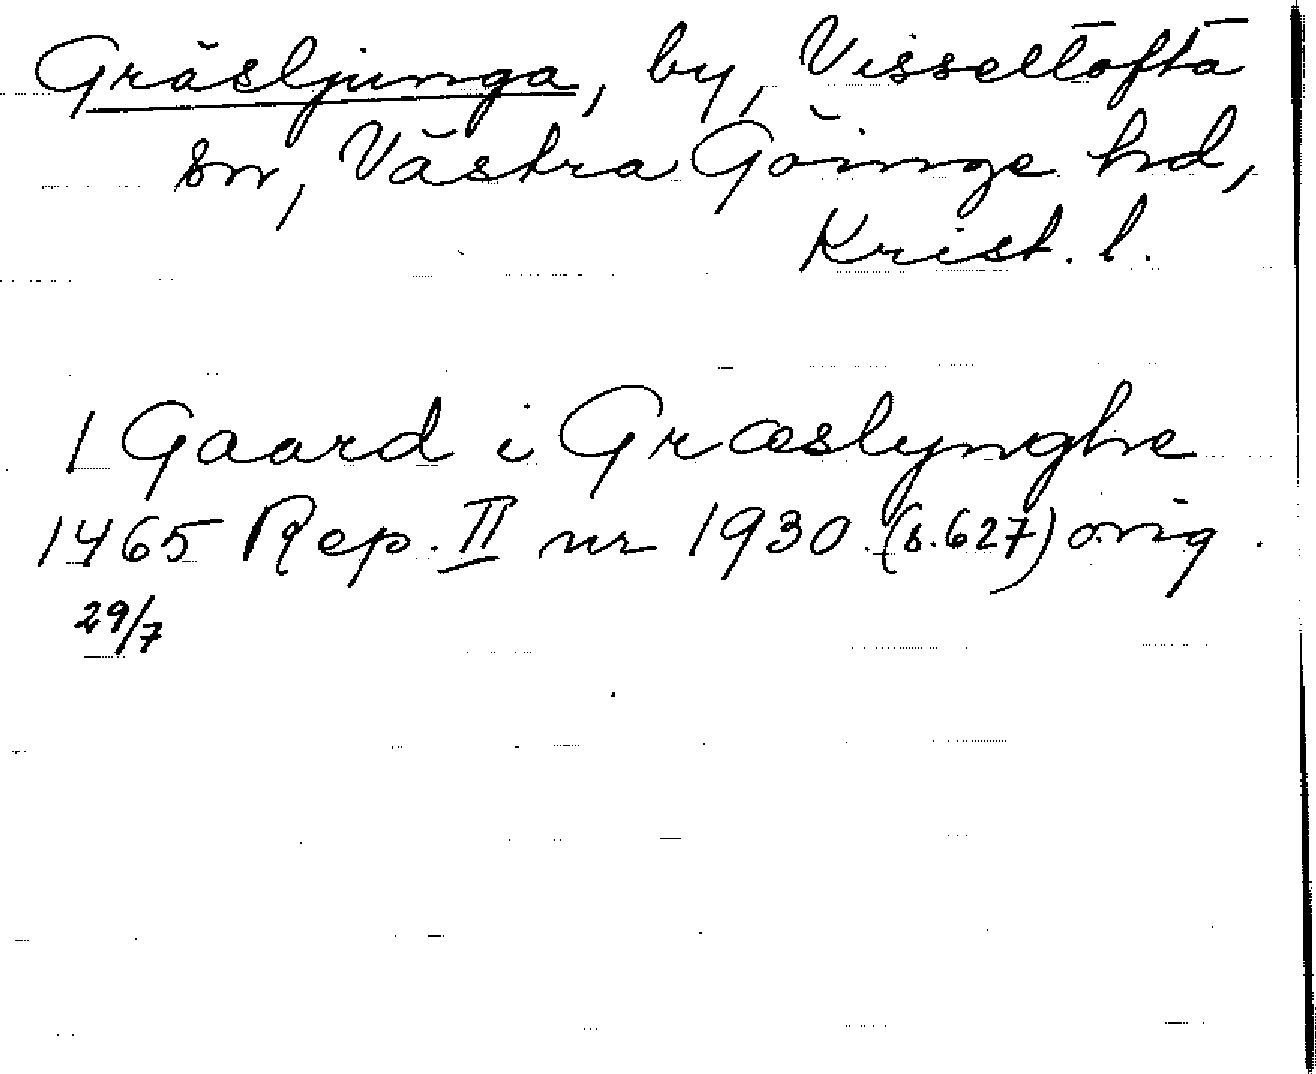 Gräsljunga, by, Visseltofta
sn, Västra Göinge hd,
Krist. l.
1 Gaard i Græslynghe
1465 Rep. II nr 1930 (s. 627) orig.
29/7